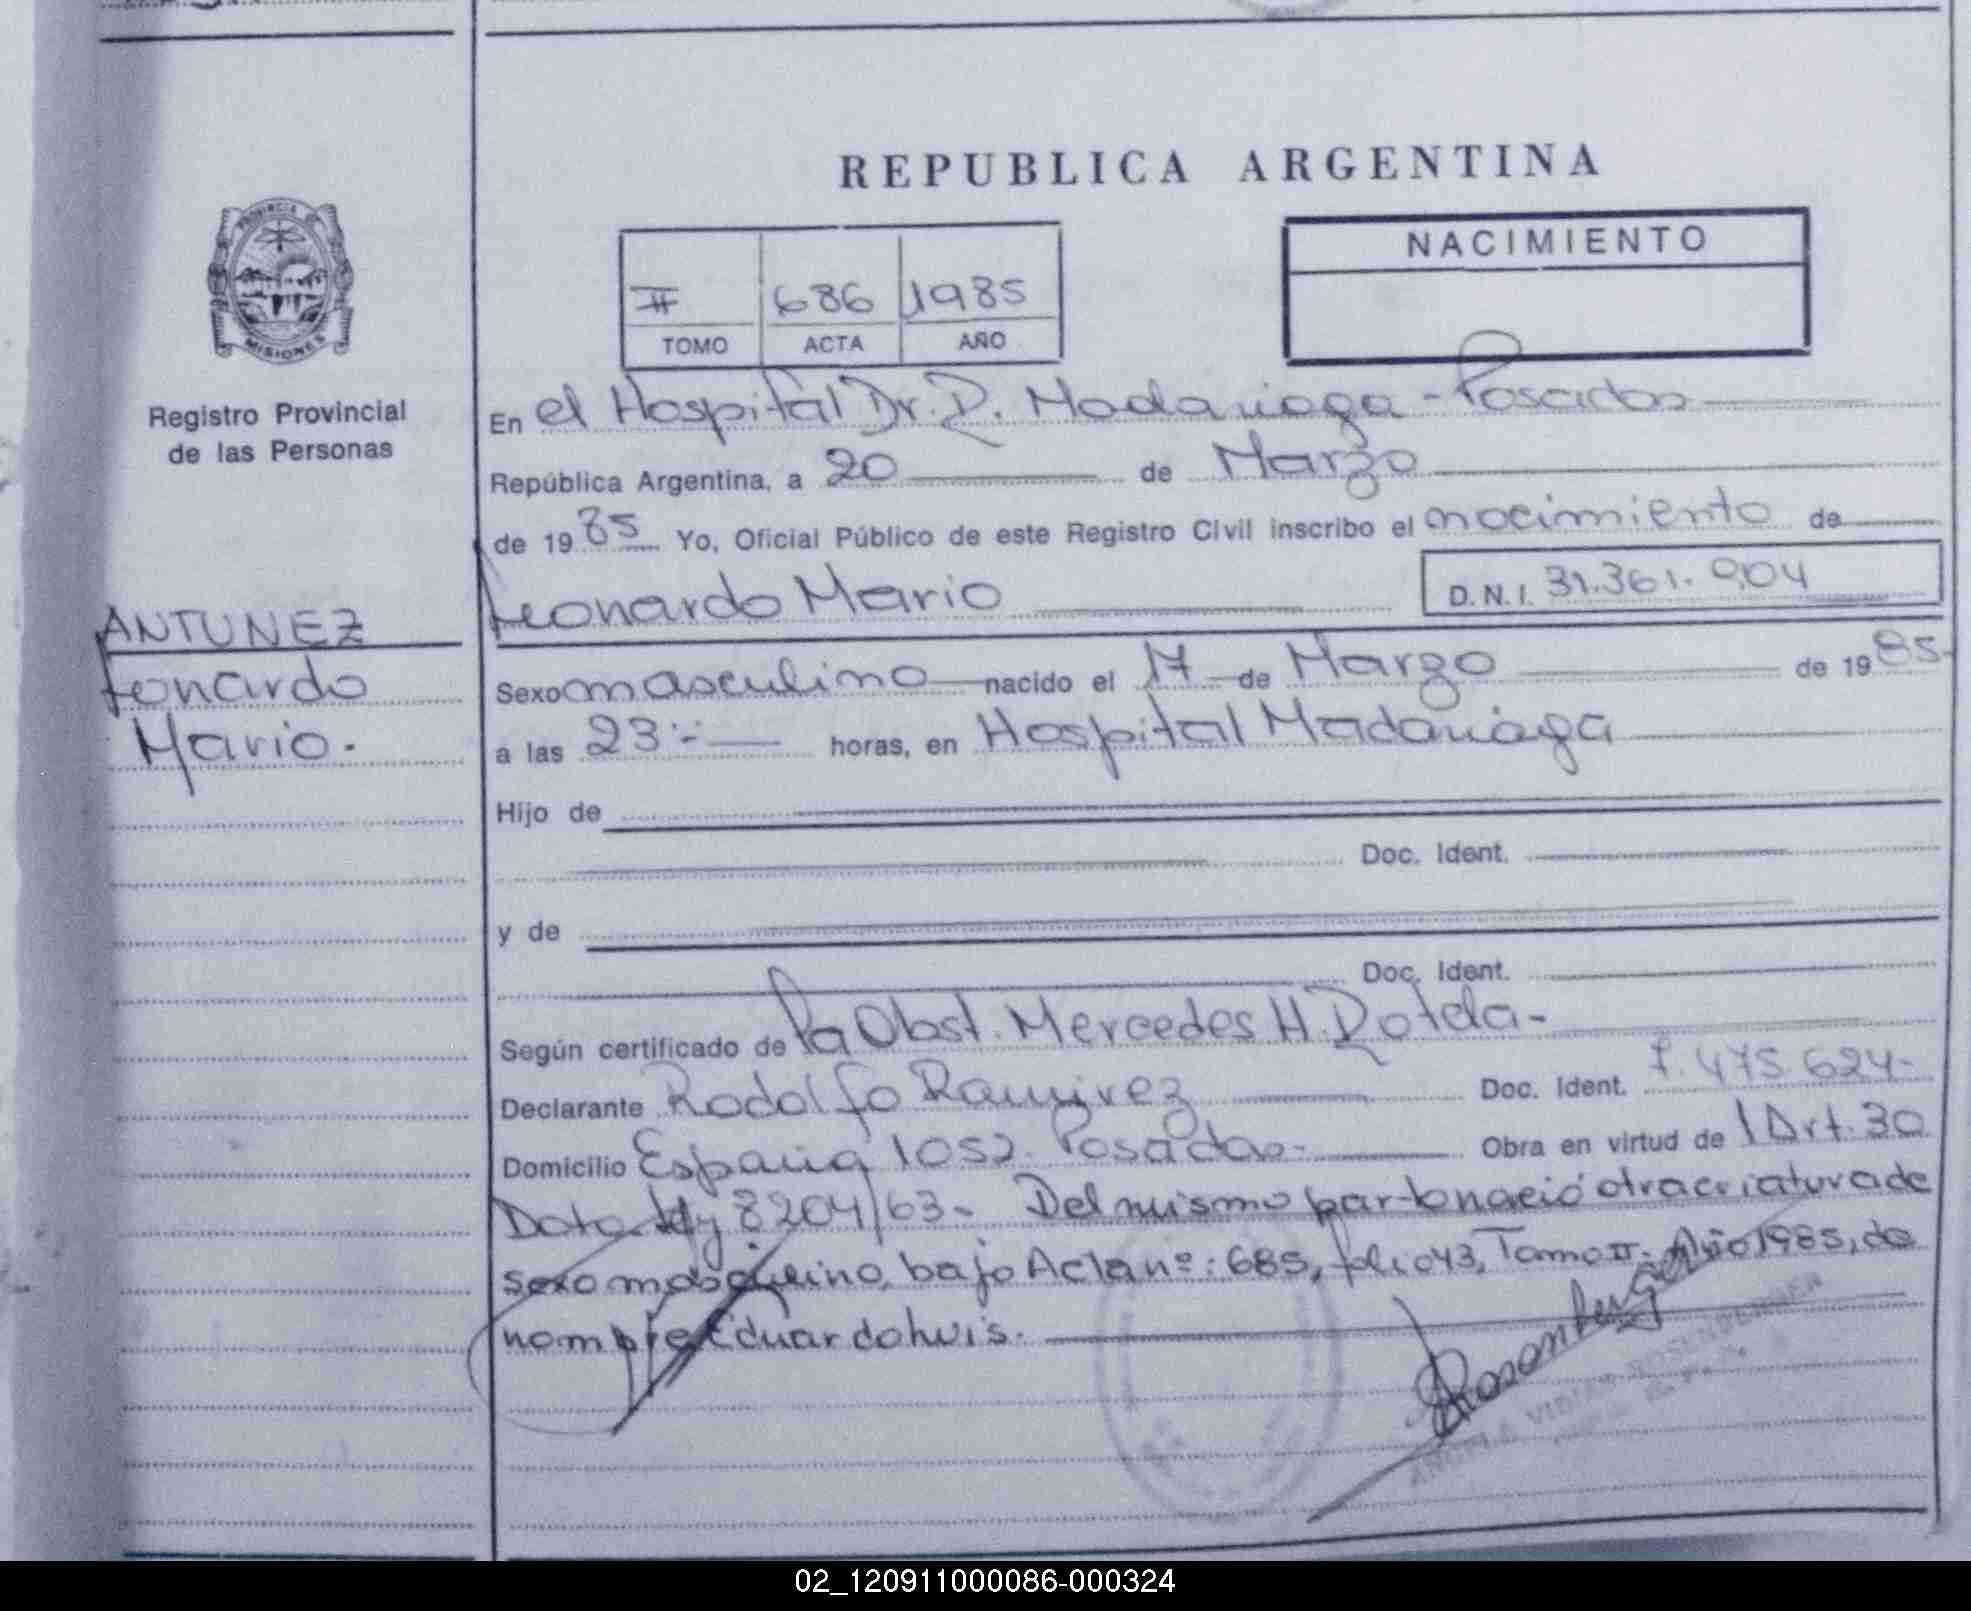 REPUBLICA ARGENTINA
PROVINCIA DE
MISIONES
Registro Provincial
de las Personas
II 686 1985
TOMO ACTA AÑO
NACIMIENTO
En el Hospital Dr. R. Madariaga - Posadas
República Argentina, a 20 de Marzo
de 1985 Yo, Oficial Público de este Registro Civil inscribo el nacimiento de
Leonardo Mario D.N.I. 31.361.904
ANTUNEZ
Leonardo
Mario.
Sexo masculino nacido el 17 de Marzo de 1985-
a las 23:- horas, en Hospital Madariaga
Hijo de
Doc. Ident.
y de
Doc. Ident.
Según certificado de la Obst. Mercedes H. Rotela-
Declarante Rodolfo Ramirez Doc. Ident. 7.475.624-
Domicilio España 1052. Posadas- Obra en virtud de l Art. 30
Dato Ley 8204/63- Del mismo parto nació otra criatura de
sexo masculino, bajo Acta nº: 685, folio 43, Tomo II- Año 1985, de
nombre Eduardo Luis.
ROSENBERGER
02_120911000086-000324